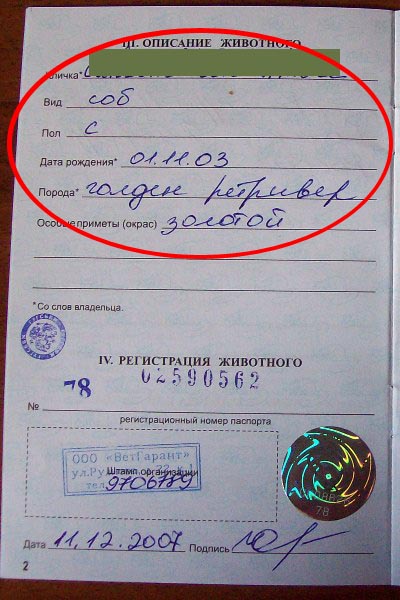 III. ОПИСАНИЕ ЖИВОТНОГО
Кличка*
Вид соб
Пол с
Дата рождения* 01.11.03
Порода* голден ретривер
Особые приметы (окрас) золотой
*Со слов владельца.
IV. РЕГИСТРАЦИЯ ЖИВОТНОГО
78 02590562
№
регистрационный номер паспорта
ООО «ВетГарант»
Штамп организации
тел. 9706789
78
Дата 11.12.2007 Подпись
2